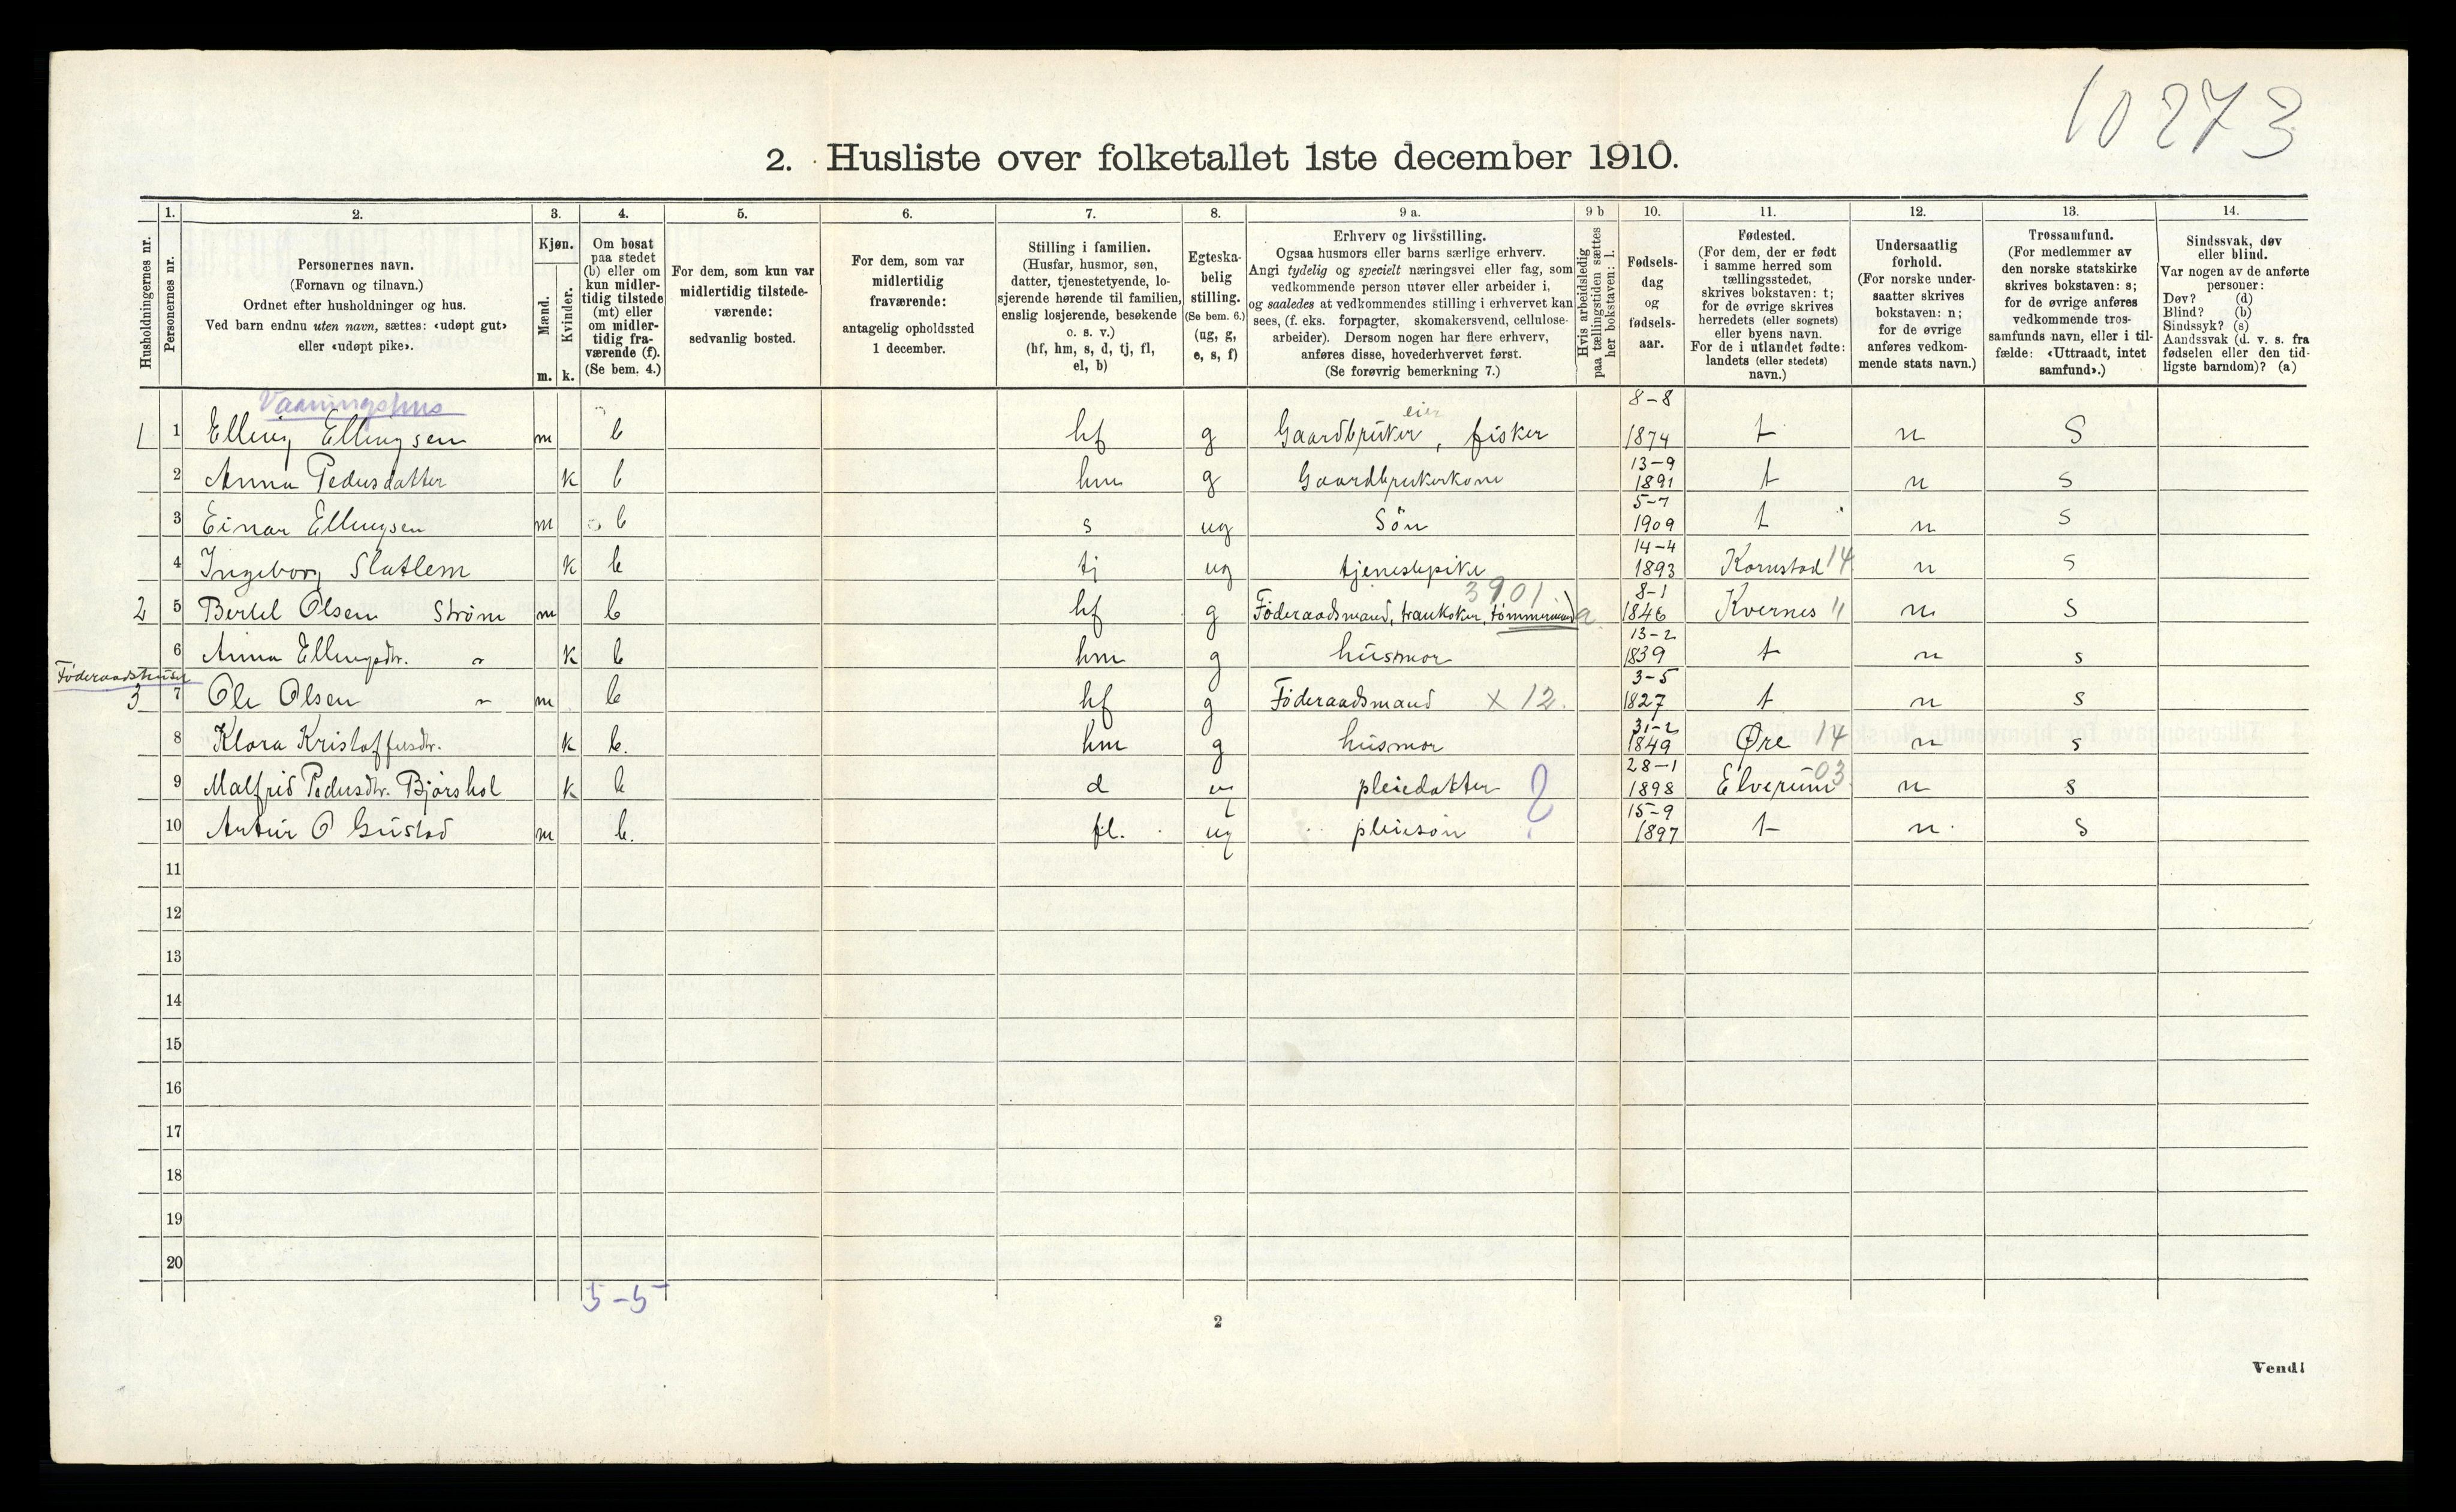 10273
2. Husliste over folketallet 1ste december 1910.
Husholdningernes nr.
1.
Personernes nr.
2.
Personernes navn.
(Fornavn og tilnavn.)
Ordnet efter husholdninger og hus.
Ved barn endnu uten navn, sættes: «udøpt gut»
eller «udøpt pike».
3.
Kjøn.
Mænd.
Kvinder.
m. k.
4.
Om bosat
paa stedet
(b) eller om
kun midler-
tidig tilstede
(mt) eller
om midler-
tidig fra-
værende (f).
(Se bem. 4.)
5.
For dem, som kun var
midlertidig tilstede-
værende:
sedvanlig bosted.
6.
For dem, som var
midlertidig
fraværende:
antagelig opholdssted
1 december.
7.
Stilling i familien.
(Husfar, husmor, søn,
datter, tjenestetyende, lo-
sjerende hørende til familien,
enslig losjerende, besøkende
o. s. v.)
(hf, hm, s, d, tj, fl,
el, b)
8.
Egteska-
belig
stilling.
(Se bem. 6.)
(ug, g,
e, s, f)
9 a.
Erhverv og livsstilling.
Ogsaa husmors eller barns særlige erhverv.
Angi tydelig og specielt næringsvei eller fag, som
vedkommende person utøver eller arbeider i,
og saaledes at vedkommendes stilling i erhvervet kan
sees, (f. eks. forpagter, skomakersvend, cellulose-
arbeider). Dersom nogen har flere erhverv,
anføres disse, hovederhvervet først.
(Se forøvrig bemerkning 7.)
9 b
Hvis arbeidsledig
paa tællingstiden sættes
her bokstaven: l.
10.
Fødsels-
dag
og
fødsels-
aar.
11.
Fødested.
(For dem, der er født
i samme herred som
tællingsstedet,
skrives bokstaven: t;
for de øvrige skrives
herredets (eller sognets)
eller byens navn.
For de i utlandet fødte:
landets (eller stedets)
navn.)
12.
Undersaatlig
forhold.
(For norske under-
saatter skrives
bokstaven: n;
for de øvrige
anføres vedkom-
mende stats navn.)
13.
Trossamfund.
(For medlemmer av
den norske statskirke
skrives bokstaven: s;
for de øvrige anføres
vedkommende tros-
samfunds navn, eller i til-
fælde: «Uttraadt, intet
samfund».)
14.
Sindssvak, døv
eller blind.
Var nogen av de anførte
personer:
Døv? (d)
Blind? (b)
Sindssyk? (s)
Aandssvak (d. v. s. fra
fødselen eller den tid-
ligste barndom)? (a)
Vaaningshus
1 1 Elling Ellingsen m b hf g Gaardbruker eier, fisker 8-8 1874 t n S
2 Anna Pedersdatter k b hm g Gaardbrukerkone 13-9 1891 t n s
3 Einar Ellingsen m b s ug Sön 5-7 1909 t n s
4 Ingeborg Slatlem k b tj ug tjenestepike 14-4 1893 Kornstad 14 n s
3901
2 5 Bertel Olsen Strøm m b hf g Föderaadsmand, trankoker, tömmermand a 8-1 1846 Kvernes " n s
6 Anna Ellingsdtr. " k b hm g husmor 13-2 1839 t n s
Föderaadshuset
3 7 Ole Olsen " m b hf g Föderaadsmand x 12. 3-5 1827 t n s
8 Klara Kristoffersdtr. k b. hm g husmor 31-2 1849 Øre 14 n s
9 Malfrid Pedersdtr. Bjørshol k b d pleiedatter ? 28-1 1898 Elverum 03 n s
10 Artur O Gustad m b. fl. ug pleiesön 15-9 1897 t n. s
11
12
13
14
15
16
17
18
19
20
5-5
2
Vend!